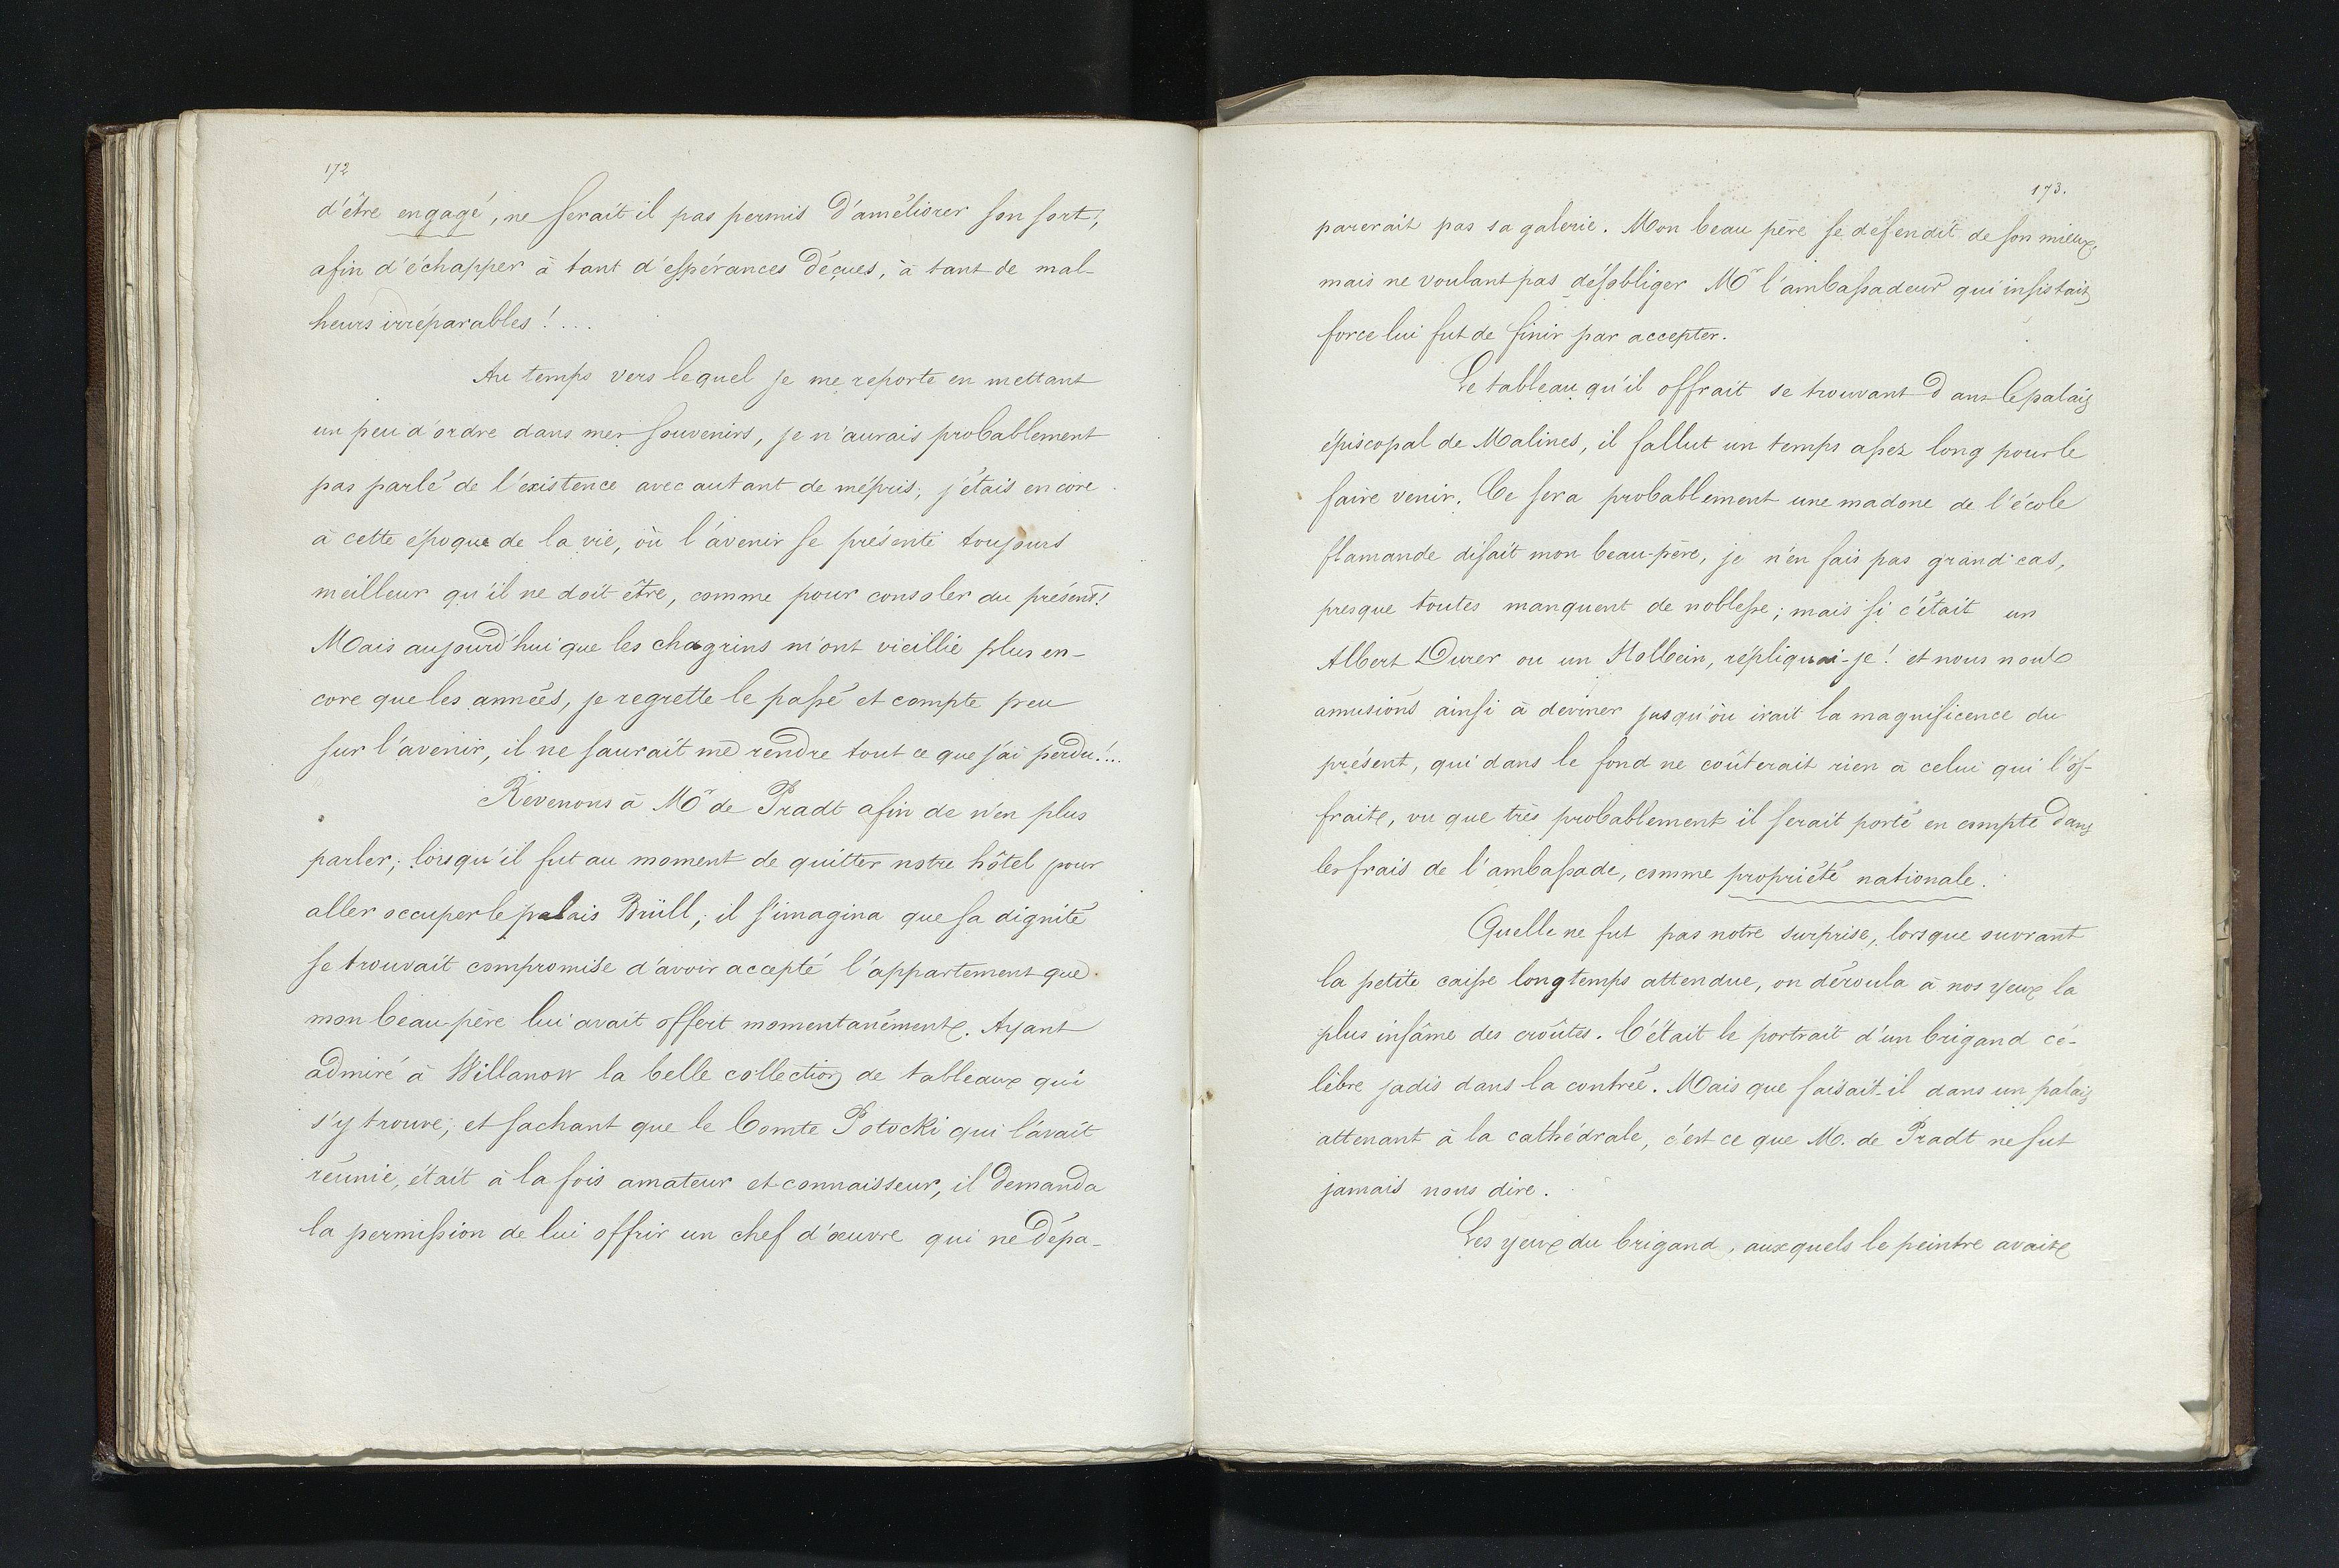 172
d'être engagé, ne serait il pas permis d'améliorer son sort,
afin d'échapper à tant d'espérances déçues, à tant de mal-
heurs irréparables ! ...
Au temps vers lequel je me reporte en mettant
un peu d'ordre dans mes souvenirs, je n'aurais probablement
pas parlé de l'existence avec autant de mépris; j'étais encore
à cette époque de la vie, où l'avenir se présente toujours
meilleur qu'il ne doit être, comme pour consoler du présent!
Mais aujourd'hui que les chagrins m'ont vieillie plus en-
core que les années, je regrette le passé et compte peu
sur l'avenir, il ne saurait me rendre tout ce que j'ai perdu!...
Revenons à Mr de Pradt afin de n'en plus
parler; lorsqu'il fut au moment de quitter notre hôtel pour
aller occuper le palais Brüll; il s'imagina que sa dignité
se trouvait compromise d'avoir accepté l'appartement que
mon beau-père lui avait offert momentanément. Ayant
admiré à Willanow la belle collection de tableaux qui
s'y trouve; et sachant que le Comte Potocki qui l'avait
réunie, était à la fois amateur et connaisseur, il demanda
la permission de lui offrir un chef d'œuvre qui ne dépa-
173.
parerait pas sa galerie. Mon beau père se défendit de son mieux,
mais ne voulant pas désobliger Mr l'ambassadeur qui insistait,
force lui fut de finir par accepter.
Le tableau qu'il offrait se trouvant dans le palais
épiscopal de Malines, il fallut un temps assez long pour le
faire venir. Ce sera probablement une madone de l'école
flamande disait mon beau-père, je n'en fais pas grand cas,
presque toutes manquent de noblesse; mais si c'était un
Albert Durer ou un Holbein, répliquai-je! et nous nous
amusions ainsi à deviner jusqu'où irait la magnificence du
présent, qui dans le fond ne coûterait rien à celui qui l'of-
frait, vu que très probablement il serait porté en compte dans
les frais de l'ambassade, comme propriété nationale.
Quelle ne fut pas notre surprise, lorsque ouvrant
la petite caisse longtemps attendue, on déroula à nos yeux la
plus infâme des croûtes. C'était le portrait d'un brigand cé-
lèbre jadis dans la contrée. Mais que faisait-il dans un palais
attenant à la cathédrale, c'est ce que M. de Pradt ne sut
jamais nous dire.
Les yeux du brigand, auxquels le peintre avait